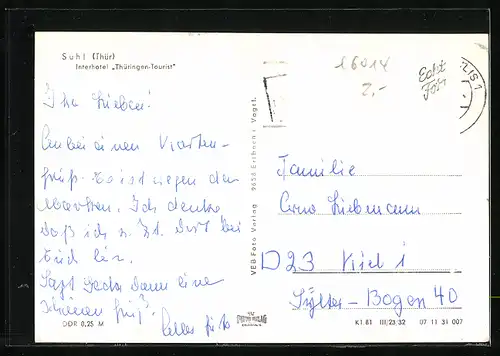 Suhl (Thür)
Interhotel „Thüringen-Tourist"
Ihr Lieben!
Anbei einen Karten-
gruß. Es ist wegen der
Marken. Ich denke
daß ich z. Zt. dort bei
Euch bin.
Sagt dann eine
schönen Gruß!
Alles Gute
DDR 0,25 M
VEB Foto-Verlag 9656 Erlbach i. Vogtl.
16014
2,-
Echt
Foto
Familie
Arno Liebmann
D23 Kiel 1
Sylter-Bogen 40
K1.81 III/23/32 07 11 31 007